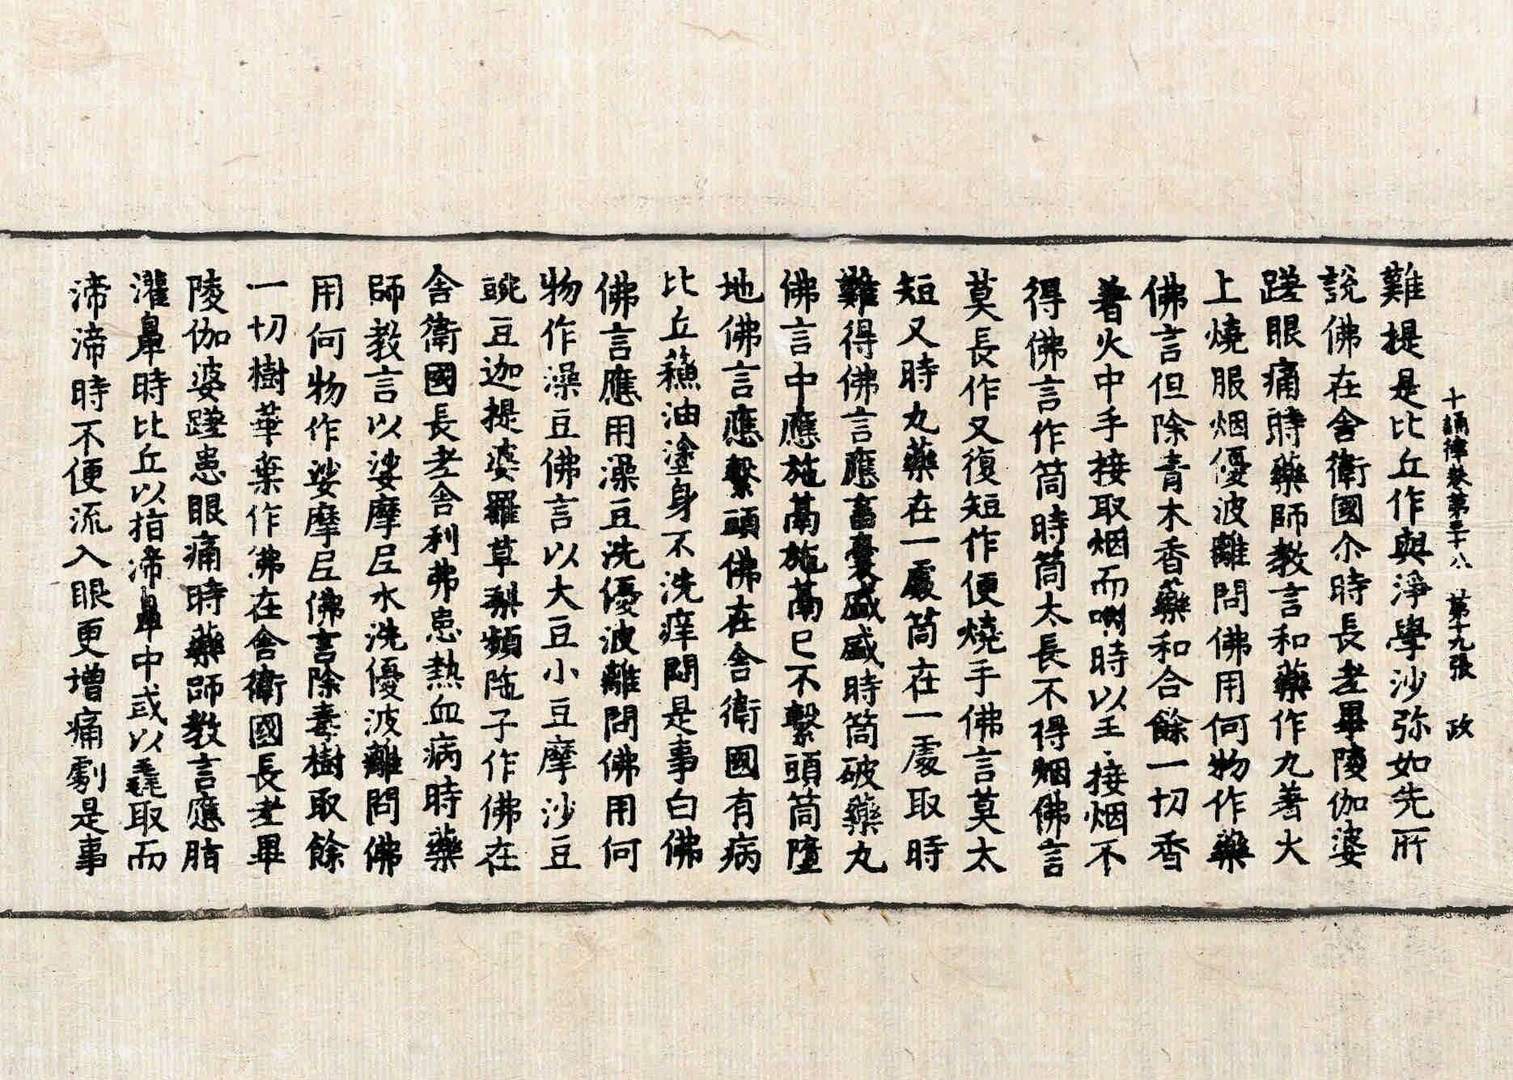 十誦律卷第三十八 第十九張 政
難提是比丘作與淨學沙弥如先所
說佛在舍衛國尒時長老畢陵伽婆
蹉眼痛時藥師教言和藥作丸著火
上燒服烟優波離問佛用何物作藥
佛言但除青木香藥和合餘一切香
著火中手接取烟而㗘時以玉接烟不
得佛言作筒時筒太長不得烟佛言
莫長作又復短作便燒手佛言莫太
短又時丸藥在一處筒在一處取時
難得佛言應畜囊盛盛時筒破藥丸
佛言中應施鬲施鬲已不繫頭筒墮
地佛言應繫頭佛在舍衛國有病
比丘蘓油塗身不洗痒悶是事白佛
佛言應用澡豆洗優波離問佛用何
物作澡豆佛言以大豆小豆摩沙豆
豌豆迦提婆羅草梨頻陁子作佛在
舍衛國長老舍利弗患熱血病時藥
師教言以娑摩㞐水洗優波離問佛
用何物作娑摩㞐佛言除毒樹取餘
一切樹華葉作佛在舍衛國長老畢
陵伽婆蹉患眼痛時藥師教言應脂
灌鼻時比丘以指渧鼻中或以毳取而
渧渧時不便流入眼更增痛劇是事